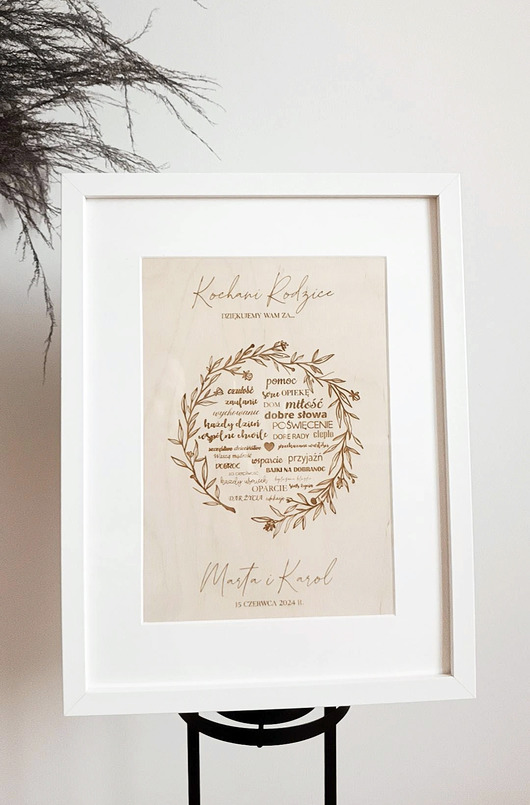 Kochani Rodzice
DZIĘKUJEMY WAM ZA...
czułość pomoc
serce OPIEKĘ
zaufanie DOM miłość
wychowanie dobre słowa
każdy dzień POŚWIĘCENIE
wspólne chwile DOBRE RADY ciepło
wsparcie przyjaźń
DOBROĆ BAJKI NA DOBRANOC
każdy uśmiech
OPARCIE
DAR ŻYCIA
Marta i Karol
15 CZERWCA 2024 R.